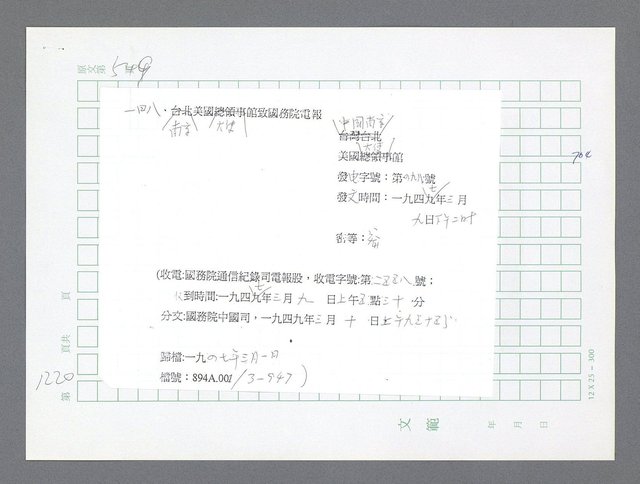 原文第 549 頁
一四八、台北美國總領事館致國務院電報
南京 大使
中國南京
台灣台北
大使
美國總領事館
發電字號：第 號
七
發文時間：一九四九年三月
九日下午二時
密等：
(收電:國務院通信紀錄司電報股，收電字號:第二 八號：
七
到時間:一九四九年三月 九 日上午 點三十分
分文:國務院中國司，一九四九年三月 十 日上午九
歸檔:一九四七年三月一日
檔號：894A.00/3-947)
704
第 1220 頁共 頁
12 X 25 - 300
文範
年 月 日